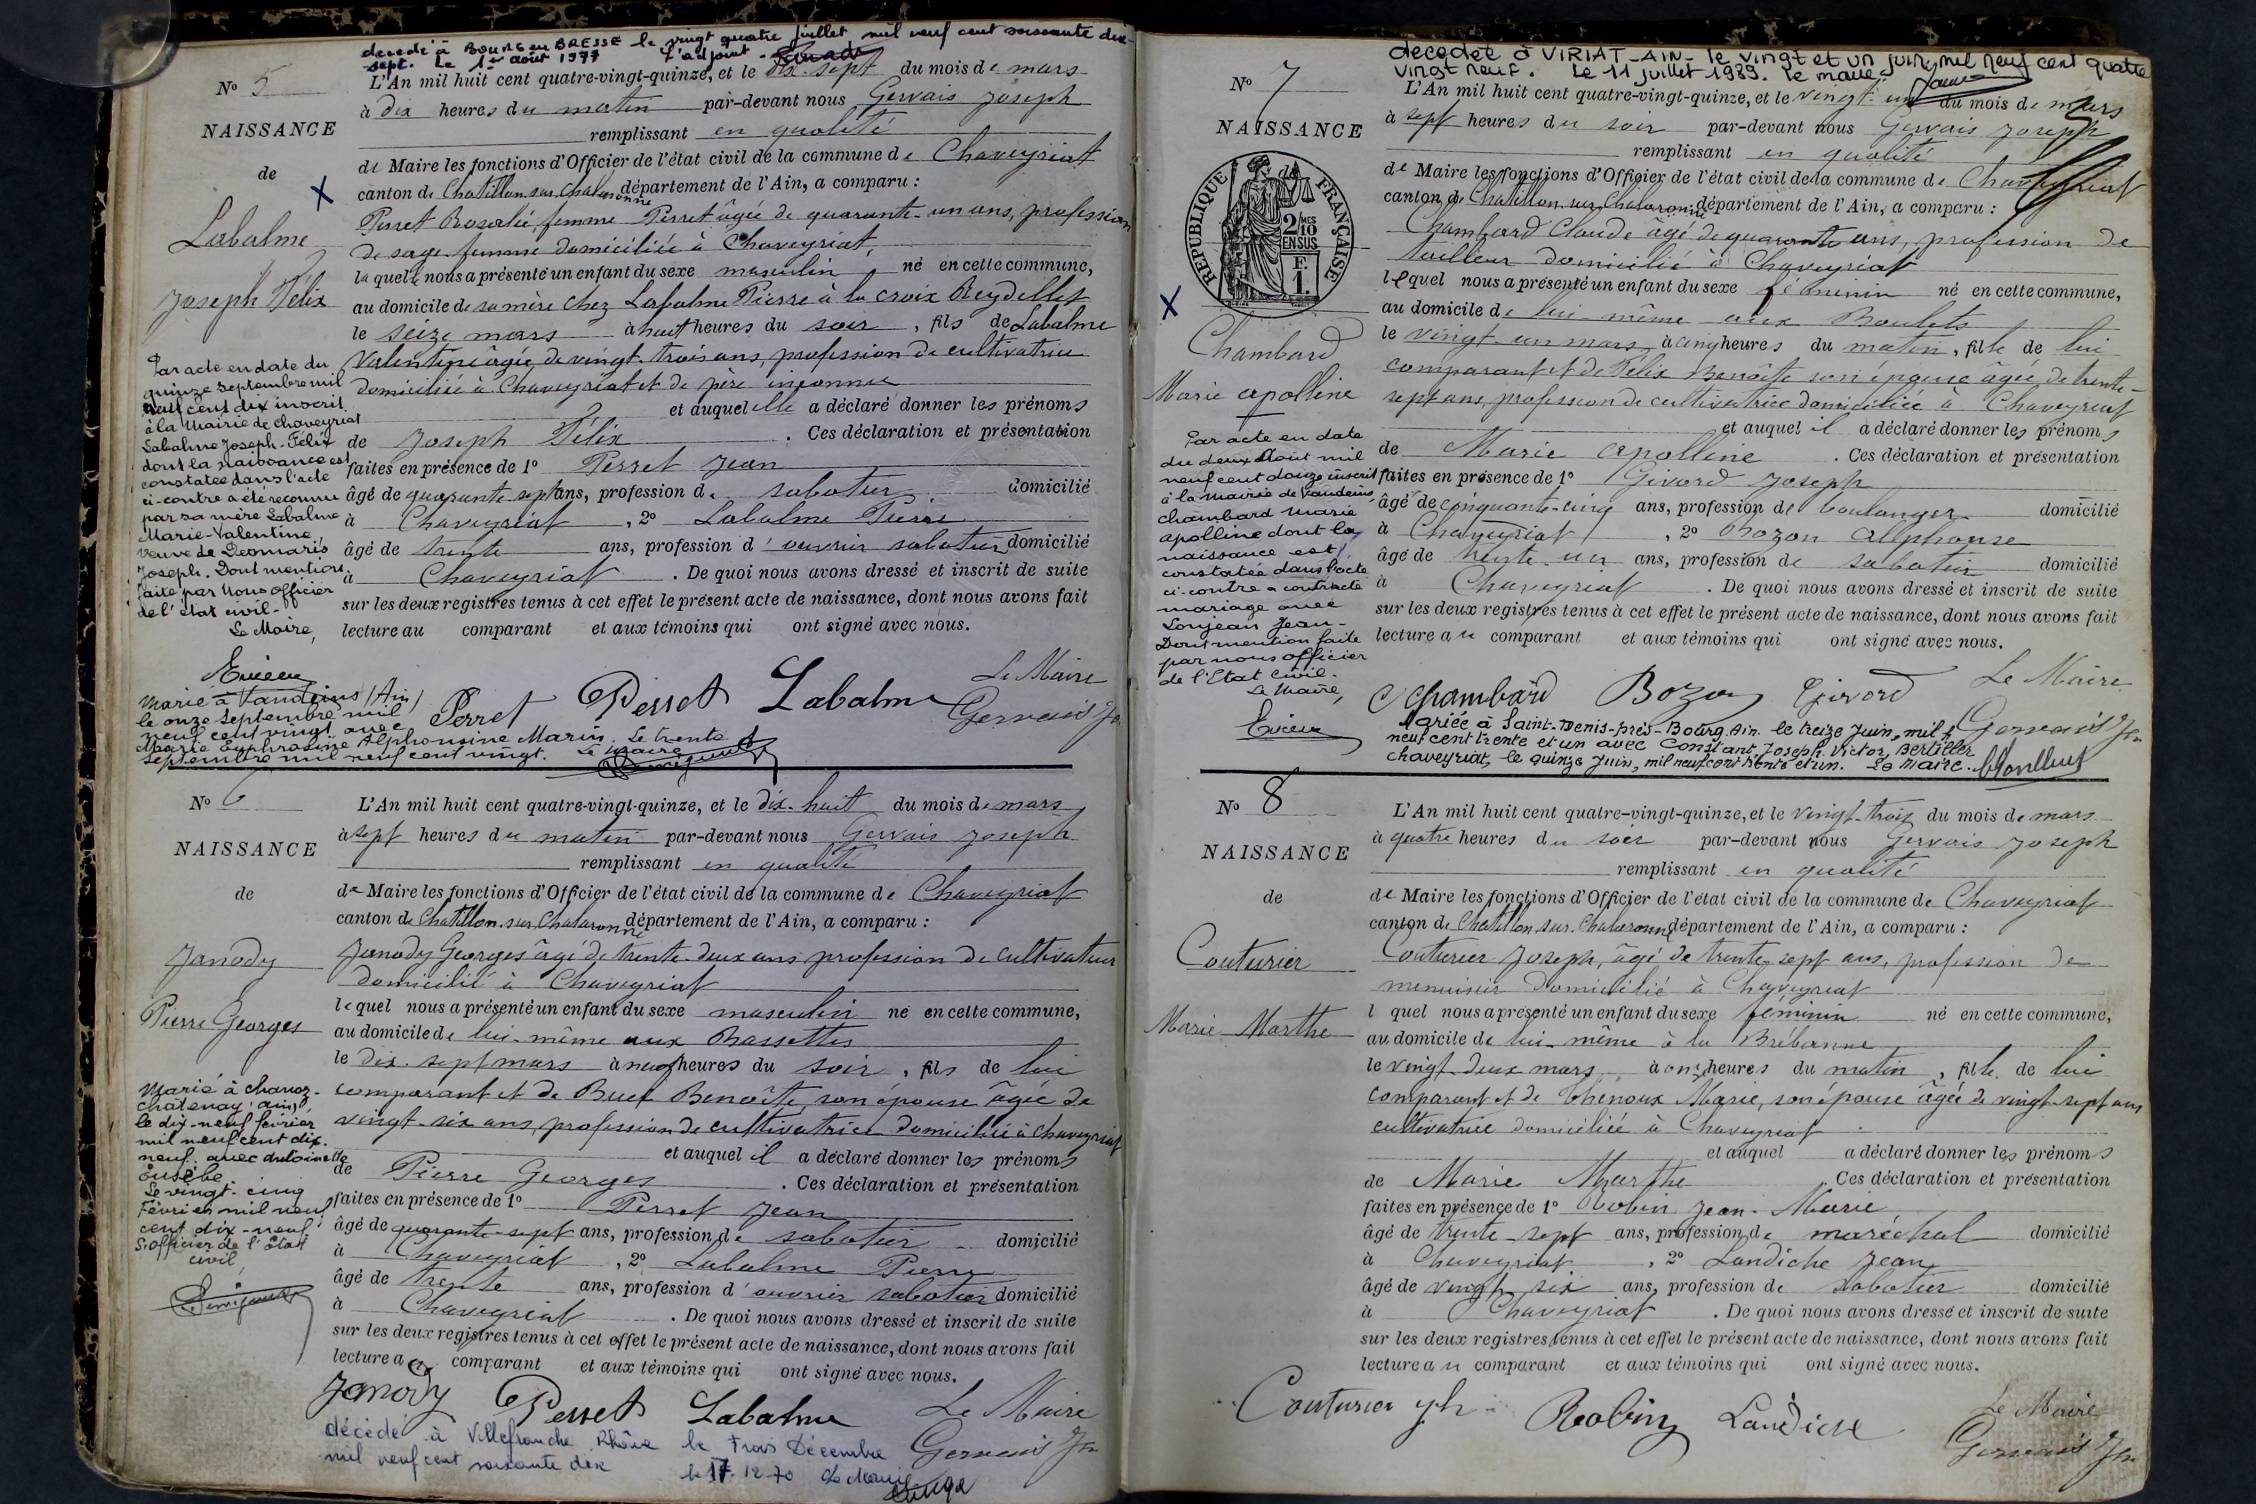 décédé à BOURG en BRESSE le vingt quatre juillet mil neuf cent soixante dix-
sept. Le 1er août 1977 L'adjoint
N° 5
NAISSANCE
de
Labalme
Joseph Félix
L'An mil huit cent quatre-vingt-quinze, et le dix-sept du mois de mars
à dix heures du matin par-devant nous Gervais Joseph
remplissant en qualité
de Maire les fonctions d'Officier de l'état civil de la commune de Chaveyriat
canton de Chatillon-sur-Chalaronne département de l'Ain, a comparu :
Perret Rosalie femme Perret âgée de quarante-un ans, profession
de sage-femme domiciliée à Chaveyriat,
laquelle nous a présenté un enfant du sexe masculin né en cette commune,
au domicile de sa mère chez Labalme Pierre à la croix Reydellet
le seize mars à huit heures du soir, fils de Labalme
Valentine âgée de vingt-trois ans, profession de cultivatrice
domiciliée à Chaveyriat et de père inconnu
et auquel elle a déclaré donner les prénoms
de Joseph Félix . Ces déclaration et présentation
faites en présence de 1° Perret Jean
âgé de quarante-sept ans, profession de sabotier domicilié
à Chaveyriat , 2° Labalme Pierre
âgé de trente ans, profession d'ouvrier sabotier domicilié
à Chaveyriat . De quoi nous avons dressé et inscrit de suite
sur les deux registres tenus à cet effet le présent acte de naissance, dont nous avons fait
lecture au comparant et aux témoins qui ont signé avec nous.
Par acte en date du
quinze septembre mil
neuf cent dix inscrit
à la Mairie de Chaveyriat
Labalme Joseph-Félix
dont la naissance est
constatée dans l'acte
ci-contre a été reconnu
par sa mère Labalme
Marie-Valentine,
veuve de Desmaris
Joseph. Dont mention
faite par Nous officier
de l'état civil.
Le Maire,
Marié à Vandeins (Ain)
le onze Septembre mil
neuf cent vingt avec
Marie Euphrosine Alphonsine Marin. Le trente
Septembre mil neuf cent vingt. Le Maire
Perret Perret Labalme
Le Maire
Gervais Jh
N° 6
NAISSANCE
de
Janody
Pierre Georges
L'An mil huit cent quatre-vingt-quinze, et le dix-huit du mois de mars
à sept heures du matin par-devant nous Gervais Joseph
remplissant en qualité
de Maire les fonctions d'Officier de l'état civil de la commune de Chaveyriat
canton de Chatillon-sur-Chalaronne département de l'Ain, a comparu :
Janody Georges âgé de trente-deux ans profession de cultivateur
domicilié à Chaveyriat
lequel nous a présenté un enfant du sexe masculin né en cette commune,
au domicile de lui-même aux Bassettes
le dix-sept mars à neuf heures du soir, fils de lui
comparant et de Buet Benoîte, son épouse âgée de
vingt-six ans, profession de cultivatrice domiciliée à Chaveyriat
et auquel il a déclaré donner les prénoms
de Pierre Georges . Ces déclaration et présentation
faites en présence de 1° Perret Jean
âgé de quarante-sept ans, profession de sabotier domicilié
à Chaveyriat , 2° Labalme Pierre
âgé de trente ans, profession d'ouvrier sabotier domicilié
à Chaveyriat . De quoi nous avons dressé et inscrit de suite
sur les deux registres tenus à cet effet le présent acte de naissance, dont nous avons fait
lecture au comparant et aux témoins qui ont signé avec nous.
Marié à Chanoz-
châtenay (ain)
le dix-neuf février
mil neuf cent dix-
neuf avec Antoinette
Eusèbe
Le vingt-cinq
Février mil neuf
cent dix-neuf
S. officier de l'État
civil
Janody Perret Labalme
Le Maire
Gervais Jh
décédé à Villefranche Rhône le Trois Décembre
mil neuf cent soixante dix le 17-12-70 Le Maire
décédée à VIRIAT-AIN- le vingt et un juin mil neuf cent quatre
vingt neuf. Le 11 juillet 1989. Le maire
N° 7
NAISSANCE
de
RÉPUBLIQUE FRANÇAISE
2/10 MES EN SUS
F. 1.
Chambard
Marie apolline
L'An mil huit cent quatre-vingt-quinze, et le vingt-un du mois de mars
à sept heures du soir par-devant nous Gervais Joseph
remplissant en qualité
de Maire les fonctions d'Officier de l'état civil de la commune de Chaveyriat
canton de Chatillon-sur-Chalaronne département de l'Ain, a comparu :
Chambard Claude âgé de quarante ans, profession de
tailleur domicilié à Chaveyriat
lequel nous a présenté un enfant du sexe féminin né en cette commune,
au domicile de lui-même aux Boulets
le vingt-un mars, à cinq heures du matin, fille de lui
comparant et de Félix Benoîte son épouse âgée de trente-
sept ans, profession de cultivatrice domiciliée à Chaveyriat
et auquel il a déclaré donner les prénoms
de Marie apolline . Ces déclaration et présentation
faites en présence de 1° Givord Joseph
âgé de cinquante-cinq ans, profession de boulanger domicilié
à Chaveyriat , 2° Bozon Alphonse
âgé de trente-un ans, profession de sabotier domicilié
à Chaveyriat . De quoi nous avons dressé et inscrit de suite
sur les deux registres tenus à cet effet le présent acte de naissance, dont nous avons fait
lecture au comparant et aux témoins qui ont signé avec nous.
Par acte en date
du deux Août mil
neuf cent douze inscrit
à la mairie de Vandeins,
Chambard Marie
apolline dont la
naissance est
constatée dans l'acte
ci-contre a contracté
mariage avec
Lonjean Jean-
Dont mention faite
par nous officier
de l'Etat Civil.
Le Maire,
Chambard Bozon Givord
Le Maire
Gervais Jh
Mariée à Saint-Denis-près-Bourg, Ain. le treize Juin, mil
neuf cent trente et un avec Constant, Joseph, Victor, Bertillier
chaveyriat, le quinze Juin, mil neuf cent trente et un. Le Maire.
N° 8
NAISSANCE
de
Couturier
Marie-Marthe
L'An mil huit cent quatre-vingt-quinze, et le vingt-trois du mois de mars
à quatre heures du soir par-devant nous Gervais Joseph
remplissant en qualité
de Maire les fonctions d'Officier de l'état civil de la commune de Chaveyriat
canton de Chatillon-sur-Chalaronne département de l'Ain, a comparu :
Couturier Joseph, âgé de trente-sept ans, profession de
menuisier domicilié à Chaveyriat
l quel nous a présenté un enfant du sexe féminin né en cette commune,
au domicile de lui-même à la Brébanne
le vingt-deux mars à onze heures du matin, fille de lui
comparant et de Thenoux Marie, son épouse âgée de vingt-sept ans
cultivatrice domiciliée à Chaveyriat
et auquel a déclaré donner les prénoms
de Marie Marthe Ces déclaration et présentation
faites en présence de 1° Robin Jean-Marie
âgé de trente-sept ans, profession de maréchal domicilié
à Chaveyriat , 2° Landiche Jean
âgé de vingt-six ans, profession de sabotier domicilié
à Chaveyriat . De quoi nous avons dressé et inscrit de suite
sur les deux registres tenus à cet effet le présent acte de naissance, dont nous avons fait
lecture au comparant et aux témoins qui ont signé avec nous.
Couturier jh Robin Landiche
Le Maire
Gervais Jh